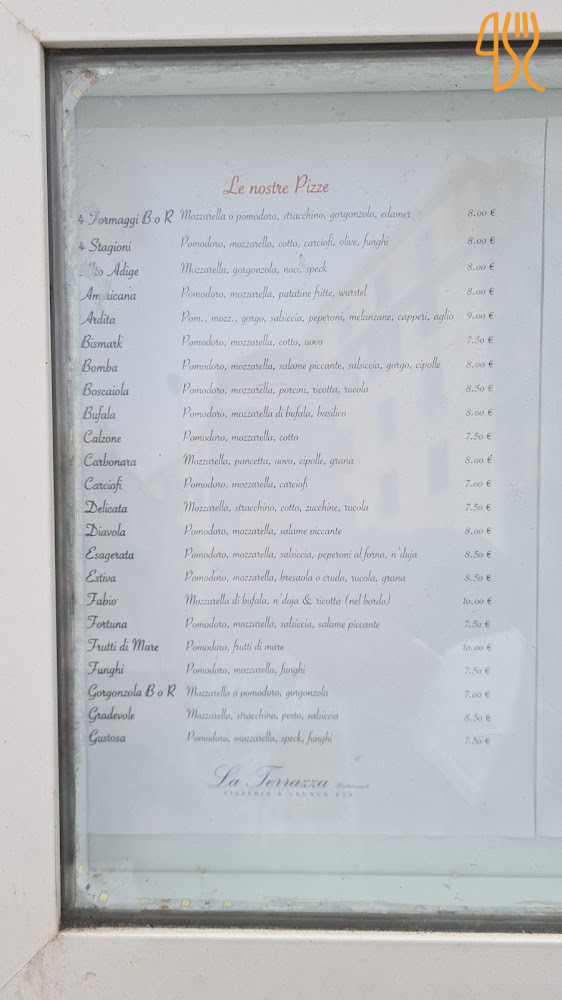 Le nostre Pizze
4 Formaggi B o R Mozzarella o pomodoro, stracchino, gorgonzola, edamer 8.00 €
4 Stagioni Pomodoro, mozzarella, cotto, carciofi, olive, funghi 8.00 €
Alto Adige Mozzarella, gorgonzola, noci, speck 8.00 €
Americana Pomodoro, mozzarella, patatine fritte, wurstel 8.00 €
Ardita Pom., mozz., gorgo, salsiccia, peperoni, melanzane, capperi, aglio 9.00 €
Bismark Pomodoro, mozzarella, cotto, uovo 7.50 €
Bomba Pomodoro, mozzarella, salame piccante, salsiccia, gorgo, cipolle 8.00 €
Boscaiola Pomodoro, mozzarella, porcini, ricotta, rucola 8.50 €
Bufala Pomodoro, mozzarella di bufala, basilico 8.00 €
Calzone Pomodoro, mozzarella, cotto 7.50 €
Carbonara Mozzarella, pancetta, uovo, cipolle, grana 8.00 €
Carciofi Pomodoro, mozzarella, carciofi 7.00 €
Delicata Mozzarella, stracchino, cotto, zucchine, rucola 7.50 €
Diavola Pomodoro, mozzarella, salame piccante 8.00 €
Esagerata Pomodoro, mozzarella, salsiccia, peperoni al forno, n'duja 8.50 €
Estiva Pomodoro, mozzarella, bresaola o crudo, rucola, grana 8.50 €
Fabio Mozzarella di bufala, n'duja & ricotta (nel bordo) 10.00 €
Fortuna Pomodoro, mozzarella, salsiccia, salame piccante 7.50 €
Frutti di Mare Pomodoro, frutti di mare 10.00 €
Funghi Pomodoro, mozzarella, funghi 7.50 €
Gorgonzola B o R Mozzarella o pomodoro, gorgonzola 7.00 €
Gradevole Mozzarella, stracchino, pesto, salsiccia 8.50 €
Gustosa Pomodoro, mozzarella, speck, funghi 7.50 €
La Terrazza Restaurant
PIZZERIA & LOUNGE BAR